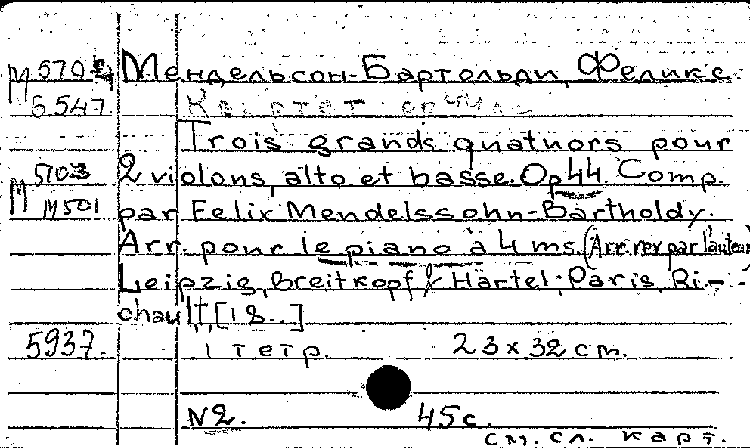 М 5704 Мендельсон-Бартольди, Феликс.
Б.547. Квартет
Trois grands quatuors pour
М 5703 2 violons, alto et basse. Op. 44. Comp.
М501 par Felix Mendelssohn-Bartholdy.
Arr. pour le piano à 4 ms. (Arr. rev. par l'auteur)
Leipzig, Breitkopf & Härtel; Paris, Ri-
chault, [18..]
5937. 1 тетр. 23 x 32 cm.
N2. 45 с.
см. сл. карт.